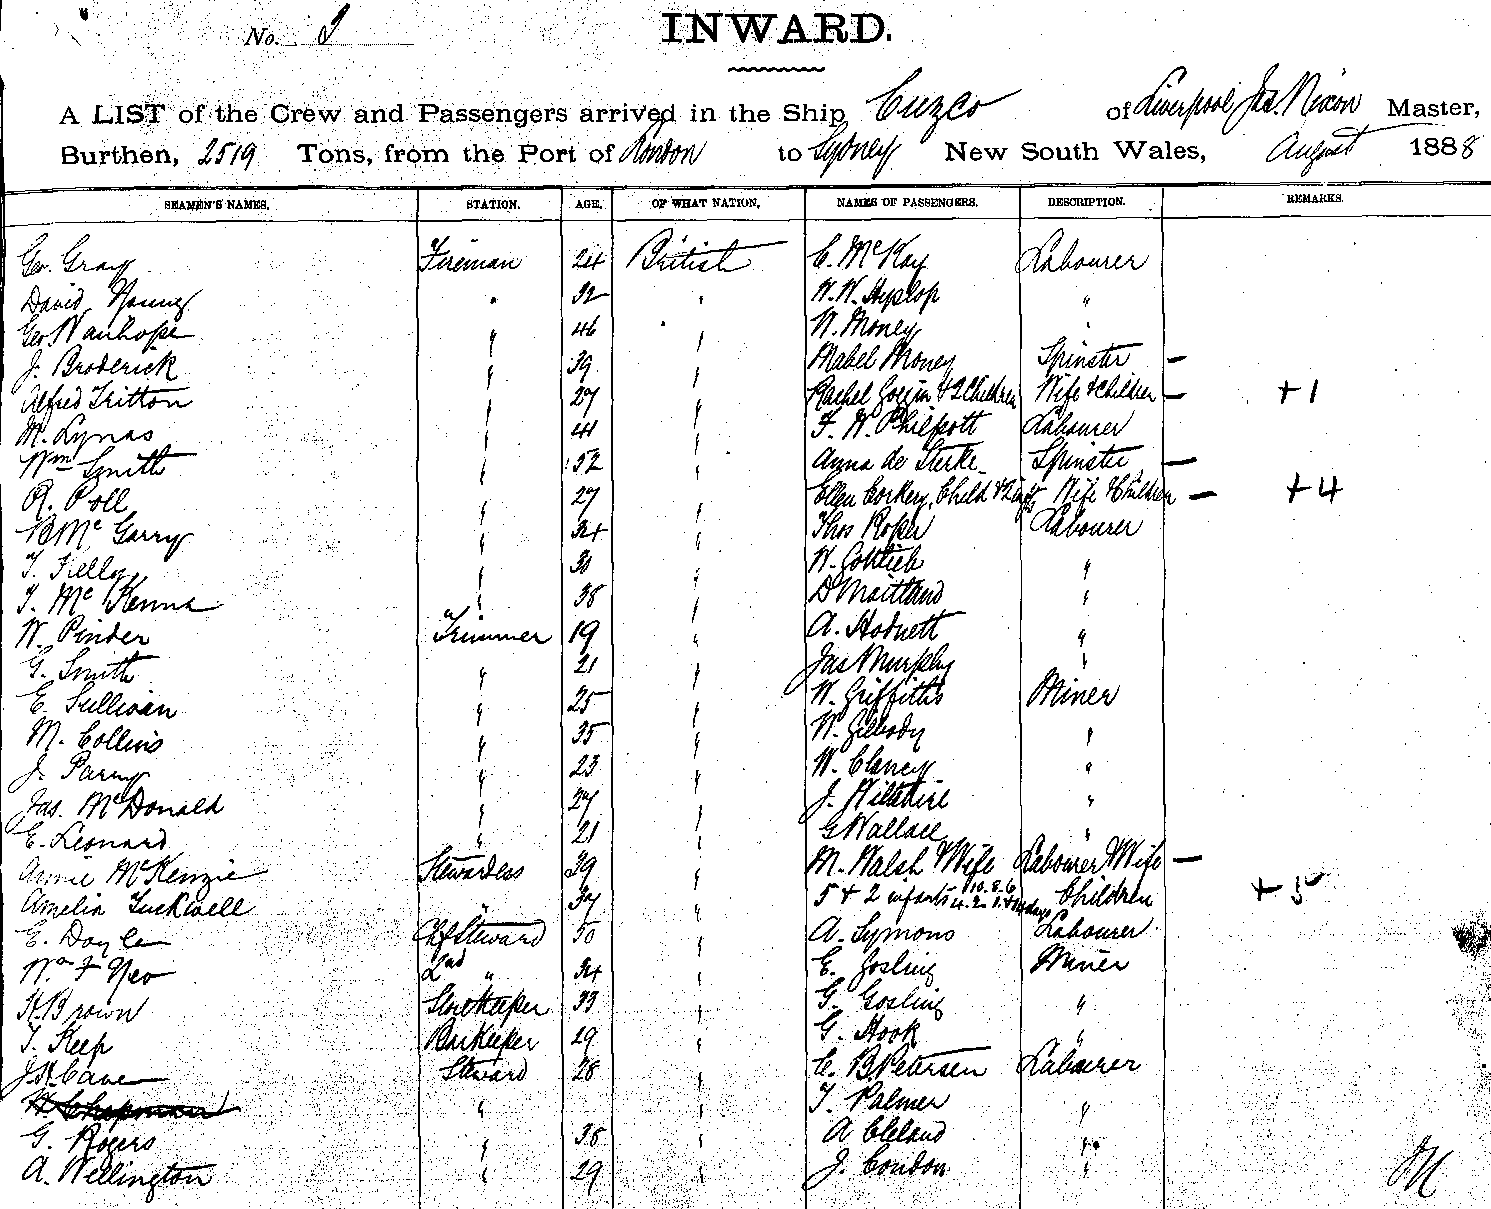 No. 9
INWARD.
A LIST of the Crew and Passengers arrived in the Ship Cuzco of Liverpool Jas. Nixon Master,
Burthen, 2519 Tons, from the Port of London to Sydney New South Wales, August 1888
SEAMEN'S NAMES. STATION. AGE. OF WHAT NATION. NAMES OF PASSENGERS. DESCRIPTION. REMARKS.
Geo. Gray Fireman 24 British C. McKay Labourer
David Young " 32 " W. W. Hyslop "
Geo Vanhope " 46 " W. Money "
J. Broderick " 39 " Mabel Money Spinster —
Alfred Tritton " 27 " Rachel Goggin & 2 Children Wife & Children — +1
M. Lynas " 41 " F. W. Philpott Labourer
Wm Smith " 32 " Anna de Sterke Spinster —
R. Poll " 27 " Ellen Corkery, Child & Wife & Children — +4
B McGarry " 34 " Thos Roper Labourer
T. Kelly " 30 " W. Gottlieb "
T. McKenna " 38 " D Maitland "
W. Pinder Trimmer 19 " A. Hodnett "
G. Smith " 21 " Jas Murphy "
E. Sullivan " 25 " W. Griffiths Miner
M. Collins " 35 " W. Gilbody "
J. Parry " 23 " W. Clancy "
Jas. McDonald " 27 " J. Wiltshire "
E. Leonard " 21 " G Wallace "
Annie McKenzie Stewardess 39 " M. Walsh & Wife Labourer & Wife —
Amelia Tuckwell " 37 " 5 + 2 infants 10. 8. 6 Children +5
E. Doyle Ch. Steward 50 " A. Symons Labourer
Wm F Neo 2nd " 34 " E. Gosling Miner
H Brown Storekeeper 33 " G. Gosling "
T. Keep Barkeeper 29 " G. Hook "
J. H. Cave Steward 28 " C. B Petersen Labourer
W Chapman " " T. Palmer "
G. Rogers " 38 " A Cleland "
A. Wellington " 29 " J. Condon " M